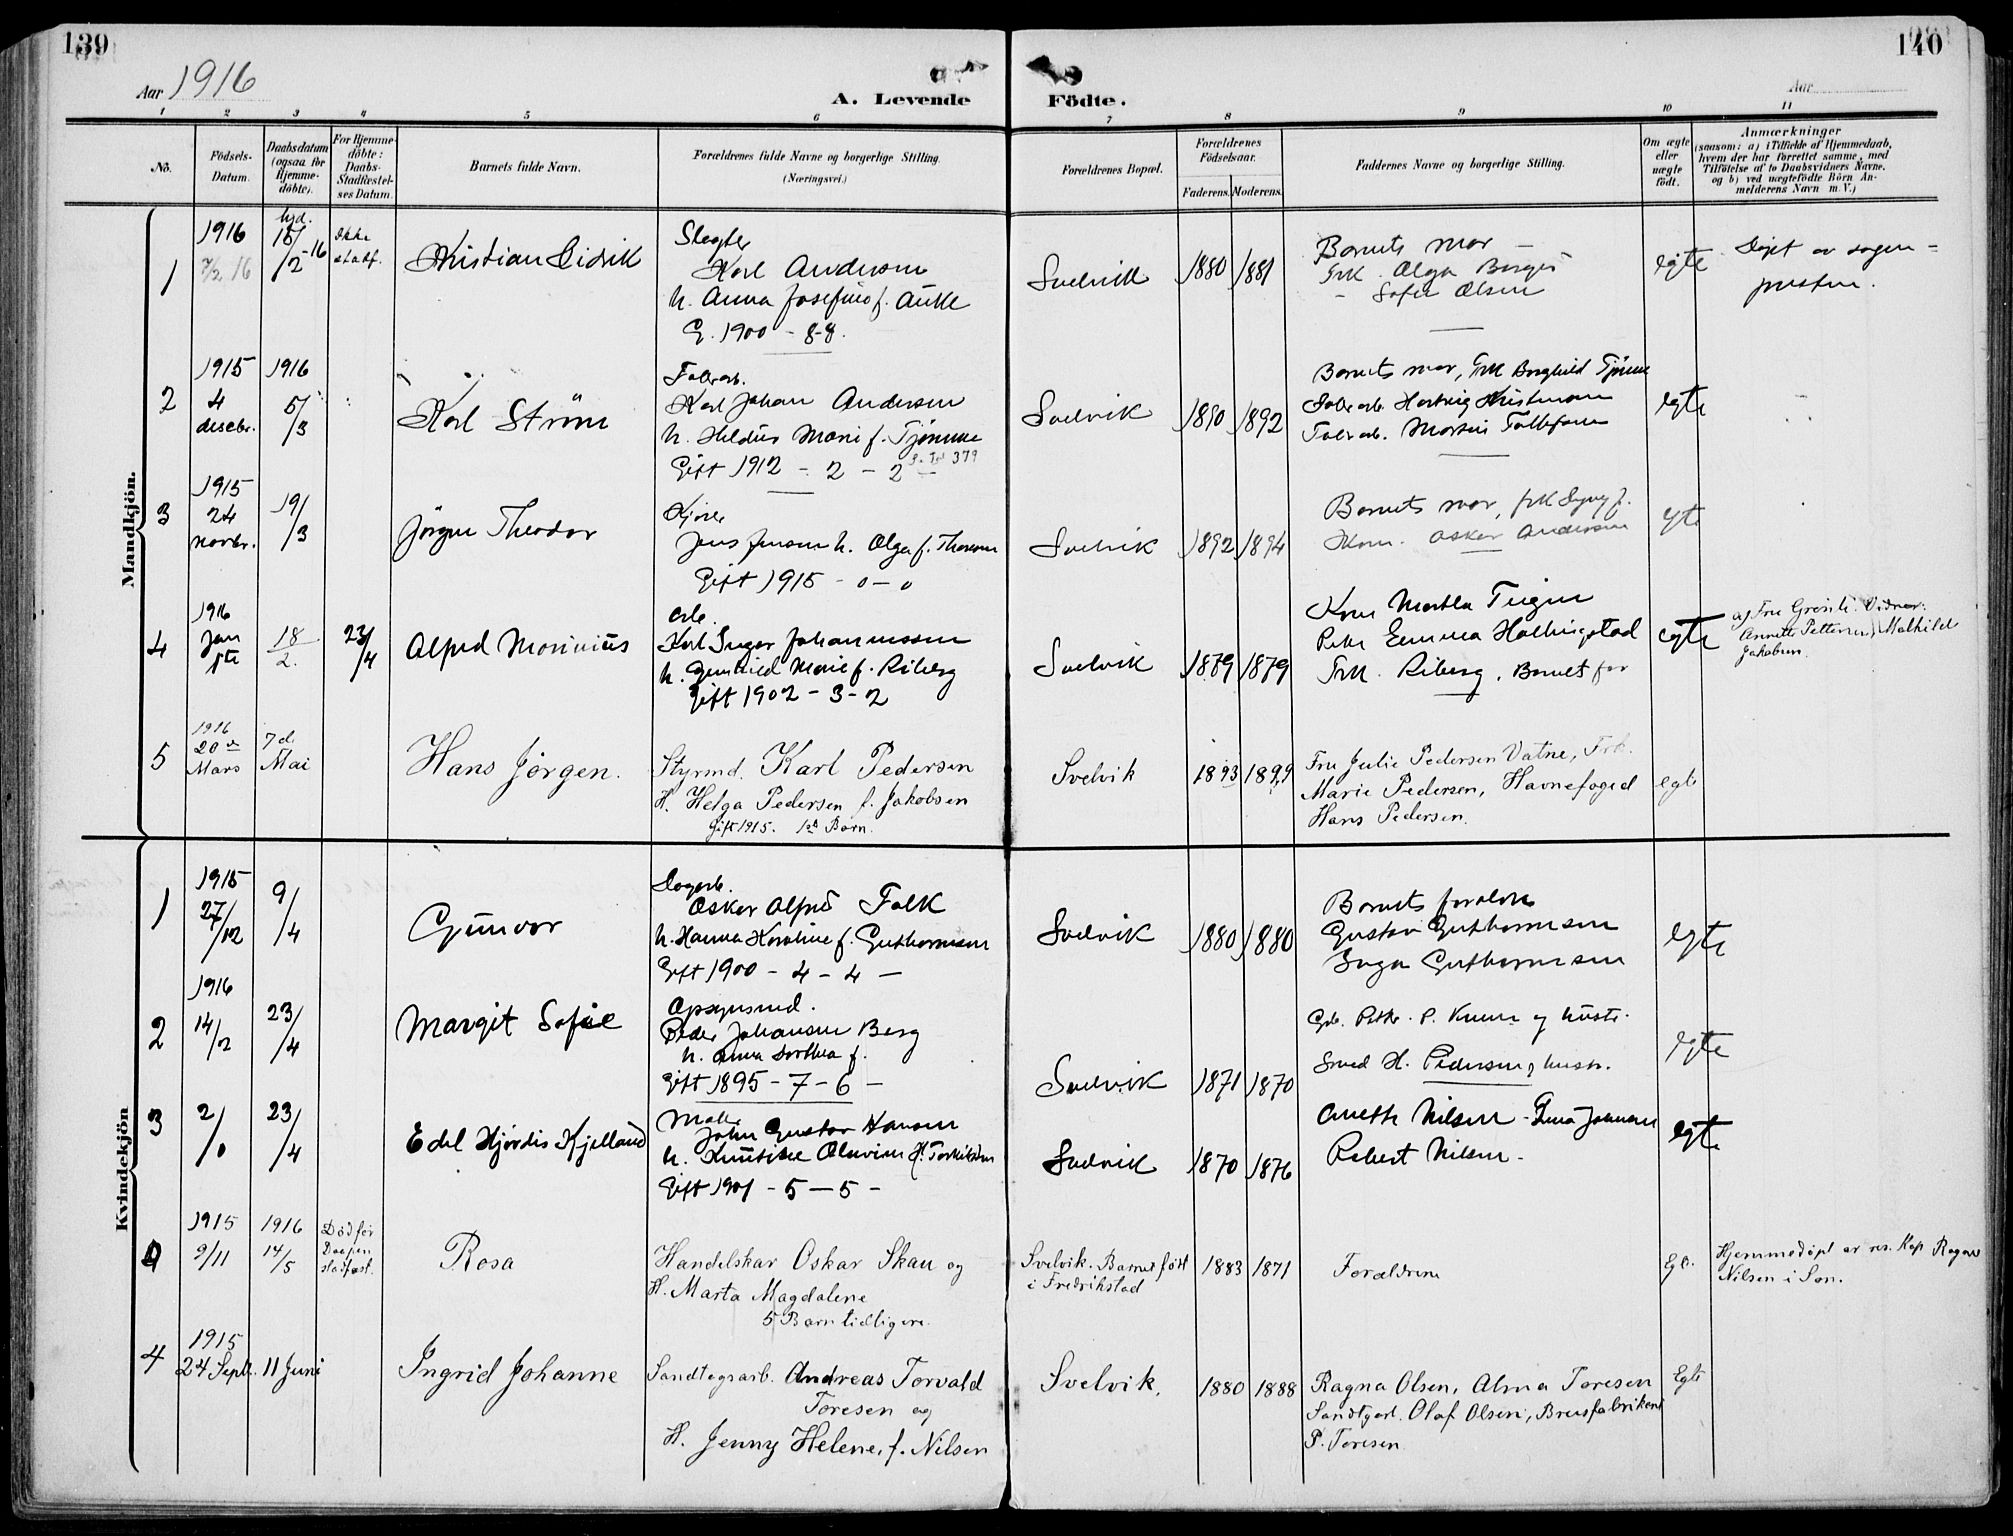 139
140
Aar 1916
A. Levende
Födte.
Aar
1 2 3 4 5 6 7 8 9 10 11
No.
Födsels-
Datum.
Daabsdatum
(ogsaa for
Hjemme-
döbte).
For Hjemme-
döbte:
Daabs-
Stadfæstel-
ses Datum.
Barnets fulde Navn.
Forældrenes fulde Navne og borgerlige Stilling.
(Næringsvei.)
Forældrenes Bopæl.
Forældrenes
Födselsaar.
Faderens. Moderens.
Faddernes Navne og borgerlige Stilling.
Om ægte
eller
uægte
födt.
Anmærkninger
(saasom: a) i Tilfælde af Hjemmedaab,
hvem der har forrettet samme, med
Tilföielse af to Daabsvidners Navne.
og b) ved uægtefödte Börn An-
melderens Navn m. V.)
Mandkjön.
1
1916
7/2 16
hjd.
15/2 -16
Ikke
stadf.
Kristian Didrik
Slagter
Karl Andersen
h. Anna Josefine f.
G. 1900 - 8-8.
Svelvik
1880 1881
Barnets mor
Frk. Olga Borger
- Sofie Olsen
egte
Døpt av sogne-
presten.
2
1915
4
desebr.
1916
5/3
Karl Strøm
Fabrarb.
Karl Johan Andersen
h. Marie f. Tjømme
Gift 1912 - 2 - 2
379
Svelvik
1890 1892
Barnets mor, Frk Borghild Tjømme
Fabrarb. Hartvig Kristensen
Fabrarb. Tollefsen
egte
3
1915
24
novbr.
19/3
Jörgen Theodor
Jens Jensen h. Olga f.
Gift 1915 - 0 - 0
Svelvik
1892 1894
Barnets mor, frk
Oskar Andersen
egte
4
1916
Jan
1ste
18/2.
23/4
Alfred Marinius
Arb.
Karl Inger Johannessen
h. Gunhild Marie f. Riberg
Gift 1902 - 3 - 2
Svelvik
1879 1879
Kone Martha Teigen
Emma Hallingstad
Frk. Riberg. Barnets far
egte
af Fru Vidner:
Annette Pettersen, Mathilde
Jakobsen
5
1916
20de
Mars
7d.
Mai
Hans Jörgen.
Styrmd. Karl Pedersen
H. Helga Pedersen f. Jakobsen
Gift 1915. 1ste Barn.
Svelvik
1893 1899
Fru Julie Pedersen Vatne, Frk.
Marie Pedersen, Havnefoged
Hans Pedersen.
egte
Kvindekjön
1
1915
27/12
9/4
Gunvor
Dagarb.
Oskar Alfred Falk
h. Hanna Karoline f. Guthormsen
Gift 1900 - 4 - 4 -
Svelvik
1880 1880
Barnets foreldre
Gustav Guthormsen
Inga Guthormsen
egte
2
1916
14/2
23/4
Margit Sofie
Opsynsmd.
Peder Johansen Berg
h. Anna Dorthea f.
Gift 1895 - 7 - 6 -
Svelvik
1871 1870
P. og hustr.
Smed H. Pedersen og hustr.
egte
3
2/
23/4
Edel Hjördis Kjelland
John Gustav Hansen
h. Olavine
Gift 1901 - 5 - 5 -
Svelvik
1870 1876
Anette Nilsen - Johansen
Robert Nilsen -
egte
4
1915
9/11
1916
14/5
Död før
Daapen
stadfæst.
Rosa
Handelskar Oskar Skau og
H. Marta Magdalene
5 Barn tidligere.
Svelvik. Barnet født
i Fredrikstad
1883 1871
Forældrene
Egte.
Hjemmedöpt av res. Kap Ragnv
Nilsen i Son.
4
1915
24 Septr.
11 Juni
Ingrid Johanne
Sandtagsarb. Andreas Torvald
Toresen og
H. Jenny Helene, f. Nilsen
Svelvik.
1880 1888
Ragna Olsen, Alma Toresen
Sandtgarb. Olaf Olsen, Brusfabrikent
P. Toresen
Egte